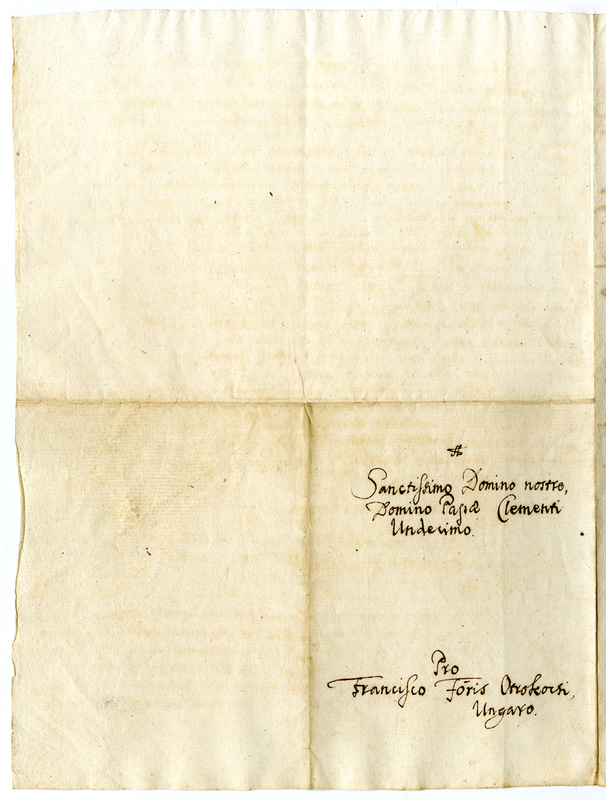 #
Sanctissimo Domino nostro,
Domino Papæ Clementi
Undecimo.
Pro
Francisco Fóris Otrokocsi,
Ungaro.